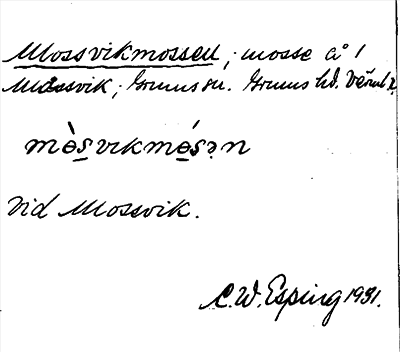 Mossvikmossen; mosse å 1
Mossvik; Grums sn. Grums hd. Värml.
mòs̱vikmó̱sən
Vid Mossvik.
C.W. Esping 1931.